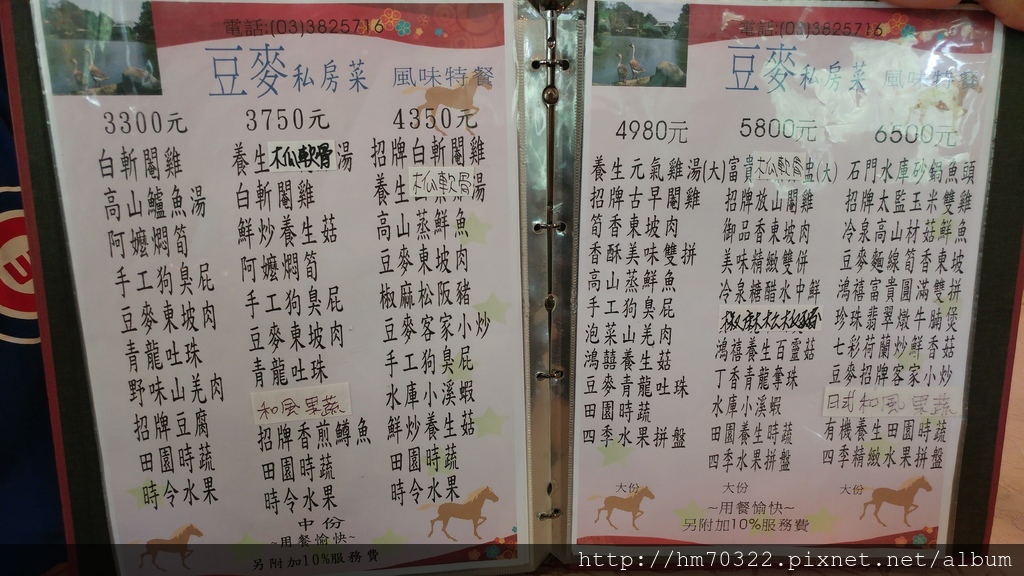 電話:(03)3825716
豆麥私房菜 風味特餐
3300元
白斬閹雞
高山鱸魚湯
阿嬤燜筍
手工狗臭屁
豆麥東坡肉
青龍吐珠
野味山羌肉
招牌豆腐
田園時蔬
時令水果
3750元
養生木瓜軟骨湯
白斬閹雞
鮮炒養生菇
阿嬤燜筍
手工狗臭屁
豆麥東坡肉
青龍吐珠
和風果蔬
招牌香煎鱒魚
田園時蔬
時令水果
4350元
招牌白斬閹雞
養生木瓜軟骨湯
高山蒸鮮魚
豆麥東坡肉
椒麻松阪豬
豆麥客家小炒
手工狗臭屁
水庫小溪蝦
鮮炒養生菇
田園時蔬
時令水果
中份
~用餐愉快~
另附加10%服務費
電話:(03)3825716
豆麥私房菜 風味特餐
4980元
養生元氣雞湯(大)
招牌古早閹雞
筍香東坡肉
香酥美味雙拼
高山蒸鮮魚
手工狗臭屁
泡菜山羌肉
鴻囍養生菇
豆麥青龍吐珠
田園時蔬
四季水果拼盤
大份
5800元
富貴木瓜軟骨盅(大)
招牌放山閹雞
御品香東坡肉
美味精緻雙併
冷泉糖醋水中鮮
鴻禧養生百靈菇
丁香青龍奪珠
水庫小溪蝦
田園養生時蔬
四季水果拼盤
大份
6500元
石門水庫砂鍋魚頭
招牌太監玉米雙雞
冷泉高山材菇鮮魚
豆麥麵線筍香東坡
鴻禧富貴圓滿雙拼
珍珠翡翠燉牛腩煲
七彩荷蘭炒鮮香菇
豆麥招牌客家小炒
日式和風果蔬
有機養生田園時蔬
四季精緻水果拼盤
大份
~用餐愉快~
另附加10%服務費
http://hm70322.pixnet.net/album